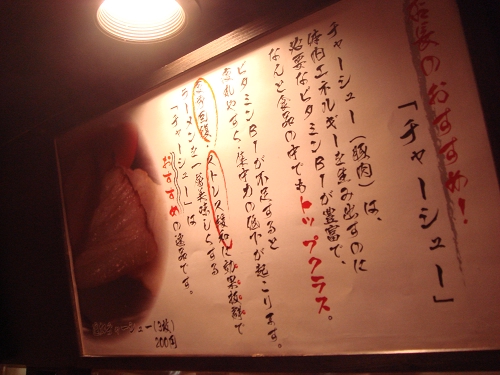 店長のおすすめ!
「チャーシュー」
チャーシュー(豚肉)は、
体内エネルギーを生み出すのに
必要なビタミンB1が豊富で、
なんと食品の中でもトップクラス。
ビタミンB1が不足すると
疲れやすく・集中力の低下が起こります。
ストレス緩和に効果抜群で
ラーメンを一番美味しくする
「チャーシュー」は
おすすめの逸品です。
チャーシュー(3枚)
200円